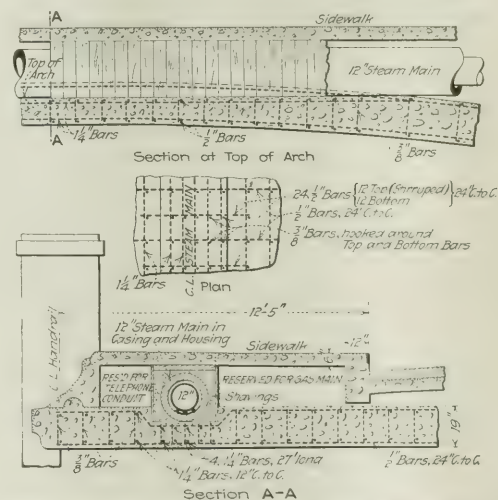 A
Sidewalk
Top of
Arch
12" Steam Main
A
1¼" Bars
½" Bars
⅜" Bars
Section at Top of Arch
24, ½" Bars {12 Top (Stirruped) 12 Bottom} 24" C. to C.
½" Bars, 24" C. to C.
⅜" Bars, hooked around
Top and Bottom Bars
C. L. STEAM MAIN
1¼" Bars
Plan
12'-5"
12" Steam Main in
Casing and Housing
Sidewalk
12"
C. L. Handrail
RES'D FOR
TELEPHONE
CONDUIT
12"
RESERVED FOR GAS MAIN
Shavings
⅜" Bars
4, 1¼" Bars, 27' long
1¼" Bars, 12" C. to C.
½" Bars, 24" C. to C.
Section A-A